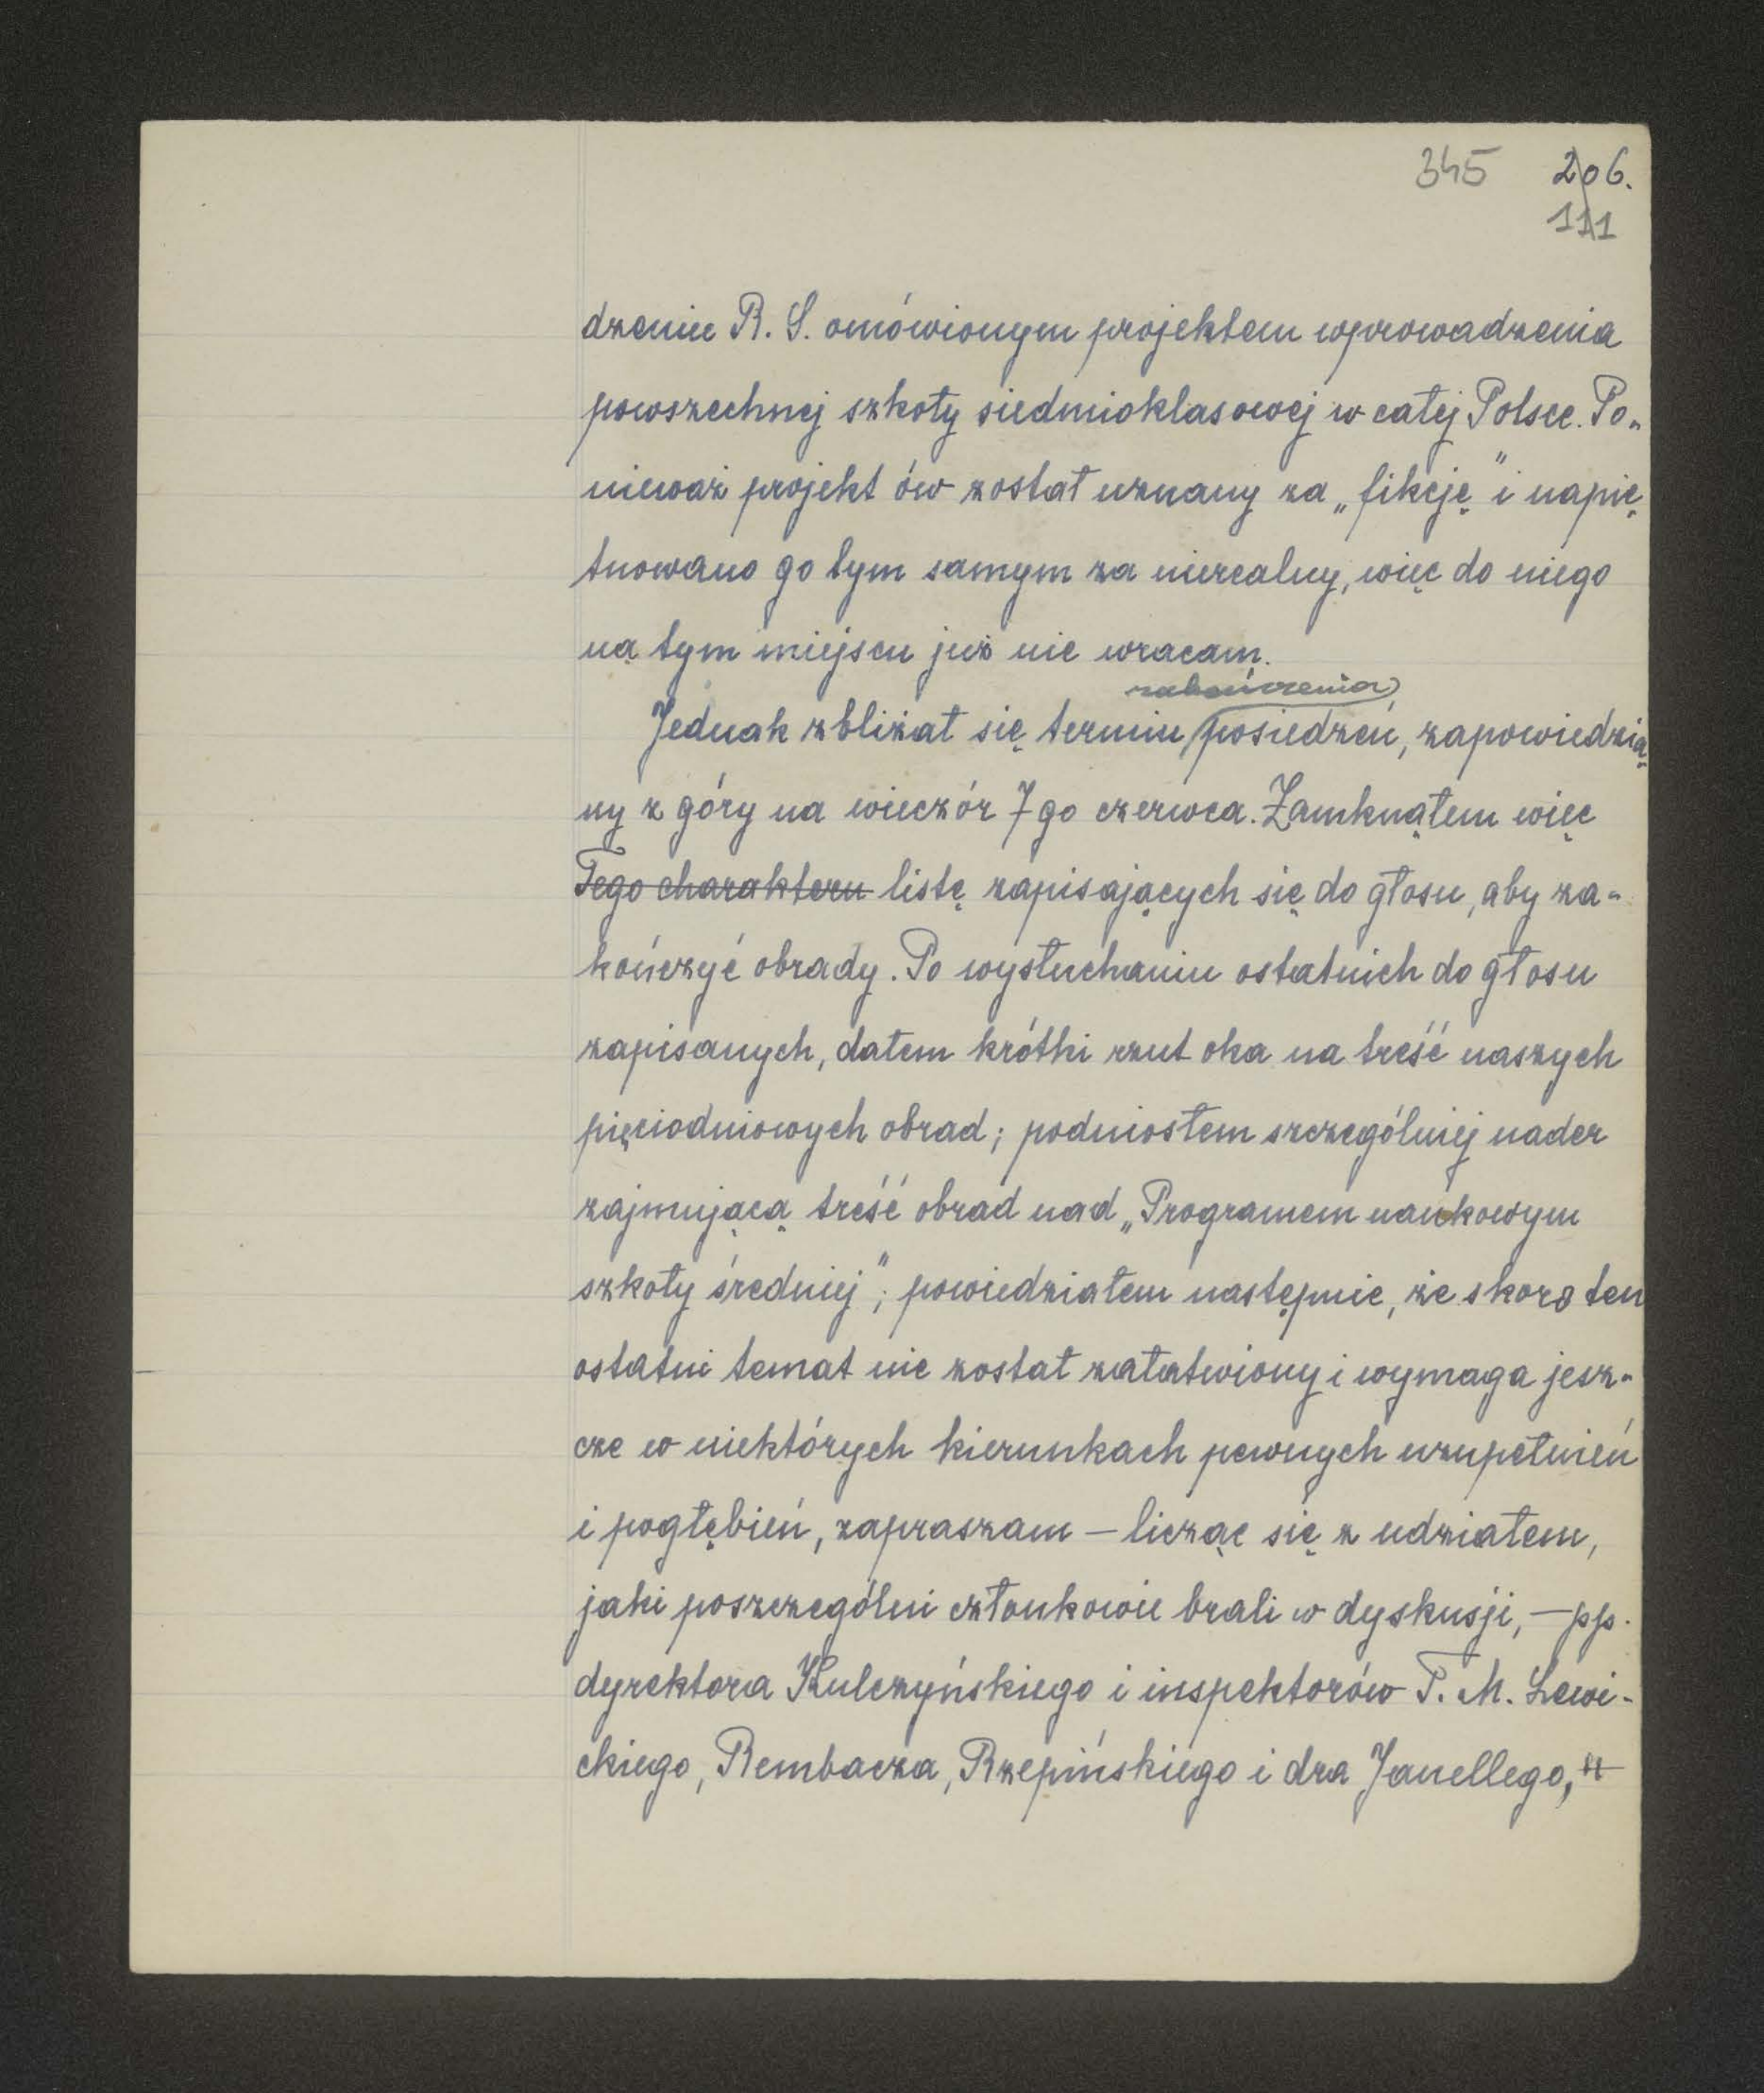 345 206.
111
dzeniu R. S. omówionym projektem wprowadzenia
powszechnej szkoły siedmioklasowej w całej Polsce. Po-
nieważ projekt ów został uznany za „fikcję” i napię
tnowano go tym samym za nierealny, więc do niego
na tym miejscu już nie wracam.
zakończenia
Jednak zbliżał się termin posiedzeń, zapowiedzia
ny z góry na wieczór 7go czerwca. Zamknąłem więc
Tego charakteru listę zapisających się do głosu, aby za-
kończyć obrady. Po wysłuchaniu ostatnich do głosu
zapisanych, dałem krótki rzut oka na treść naszych
pięciodniowych obrad; podniosłem szczególniej nader
zajmującą treść obrad nad „Programem naukowym
szkoły średniej”; powiedziałem następnie, że skoro ten
ostatni temat nie został załatwiony i wymaga jesz-
cze w niektórych kierunkach pewnych uzupełnień
i pogłębień, zapraszam – licząc się z udziałem,
jaki poszczególni członkowie brali w dyskusji, – pp.
dyrektora Kulczyńskiego i inspektorów T. M. Lewi-
ckiego, Rembacza, Rzepińskiego i dra Janellego,